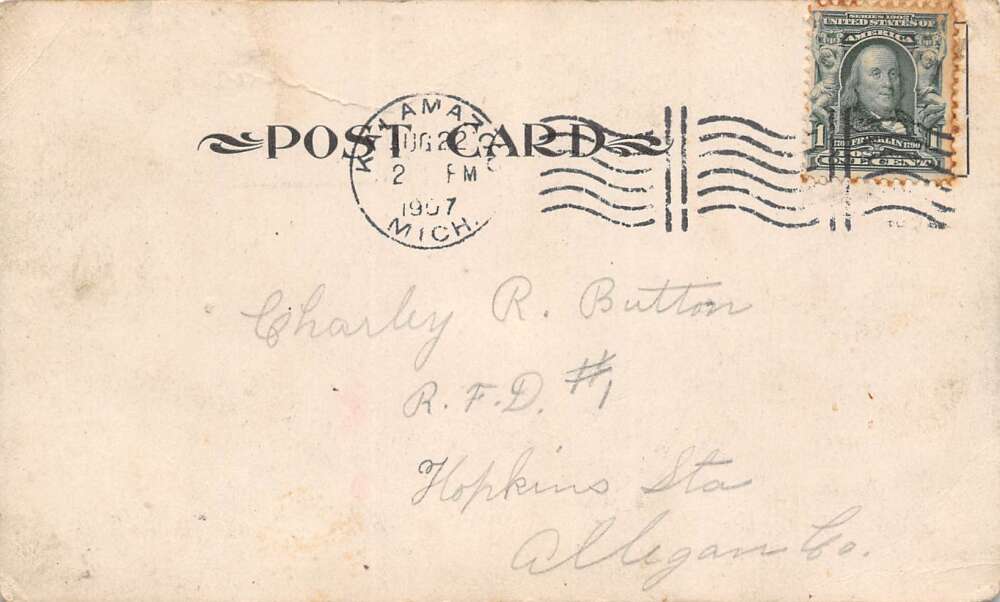 POST CARD
KALAMAZOO
AUG 22
2 PM
1907
MICH.
SERIES 1902
UNITED STATES OF
AMERICA
1 FRANKLIN 1
1706 1790
ONE CENT
Charley R. Button
R. F. D. #1
Hopkins Sta
Allegan Co.